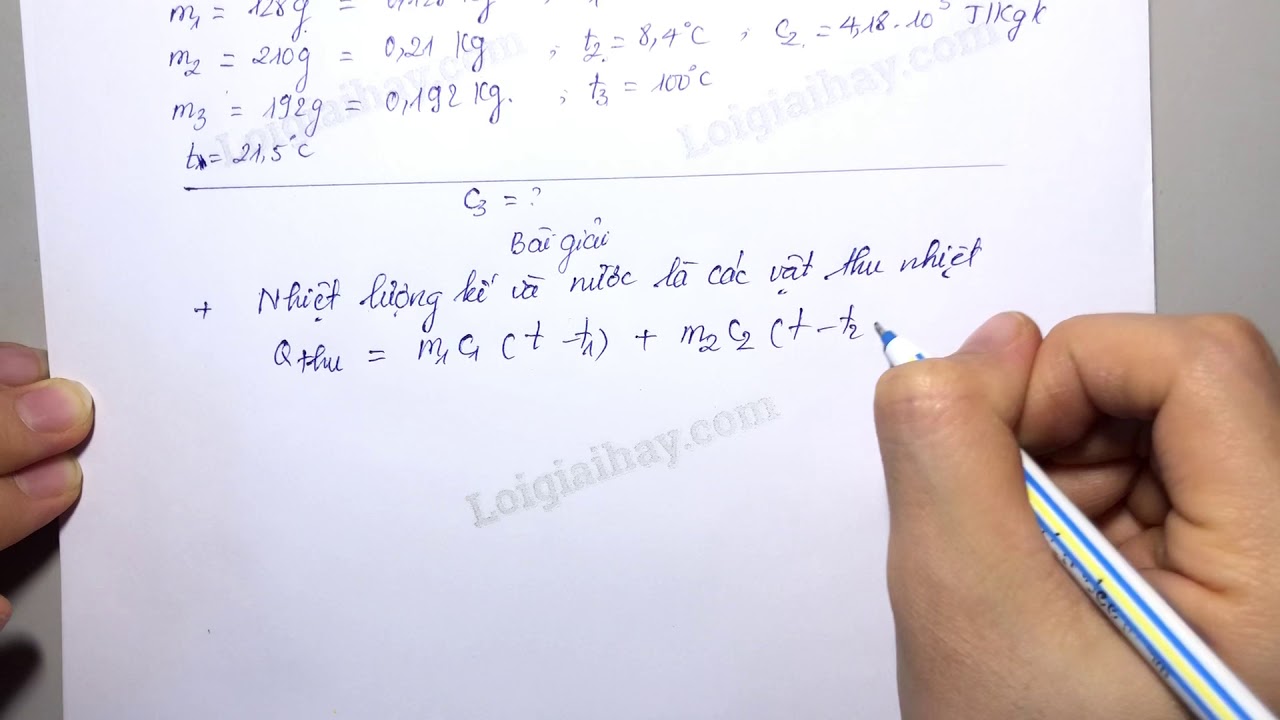 m₁ = 128g = 0,128 kg
m₂ = 210g = 0,21 Kg ; t₂ = 8,4°C ; C₂ = 4,18.10³ J/Kgk
m₃ = 192g = 0,192 Kg. ; t₃ = 100°C
t = 21,5°C
C₃ = ?
Bài giải
+ Nhiệt lượng kế và nước là các vật thu nhiệt
Qthu = m₁C₁ (t - t₁) + m₂C₂ (t - t₂
Loigiaihay.com
Loigiaihay.com
Loigiaihay.com